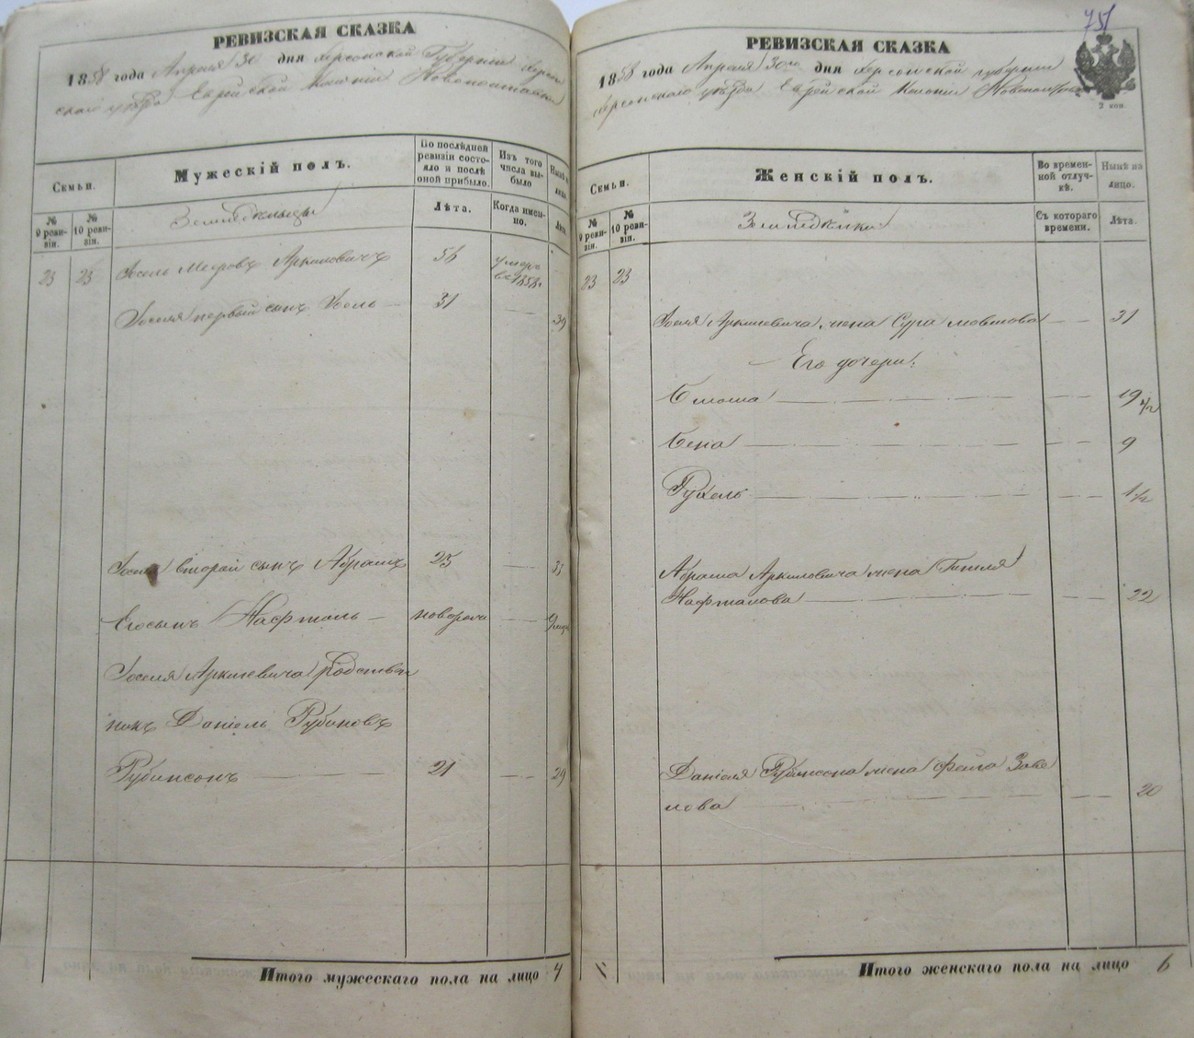 РЕВИЗСКАЯ СКАЗКА
1858 года Апреля 30 дня Херсонской Губернии Херсон
скаго уѣзда Еврейской Колоніи Новополтавки
Семьи.
Мужескій полъ.
Во послѣдней ревизіи состояло и послѣ оной прибыло.
Изъ того числа выбыло
Нынѣ на лицо.
№ 9 ревизіи.
№ 10 ревизіи.
Земледѣльцы
Лѣта.
Когда именно.
Лѣта.
23 23 Іосель Мееровъ Аркилевичъ 56 умеръ въ 1858
Іоселя первый сынъ Іоель 31 39
Іоселя второй сынъ Абрамъ 25 33
Его сынъ Нафталь новорож
Іоселя Аркилевича родствен
никъ Даніель Рубиновъ
Рубинсонъ 21 29
Итого мужескаго пола на лицо 4
751
РЕВИЗСКАЯ СКАЗКА
1858 года Апреля 30го дня Херсонской губернии
Херсонскаго уѣзда Еврейской Колоніи
2 коп.
Семьи.
Женскій полъ.
Во временной отлучкѣ.
Нынѣ на лицо.
№ 9 ревизіи.
№ 10 ревизіи.
Земледѣлки
Съ котораго времени.
Лѣта.
23 23
Іоеля Аркилевича жена Сура Мовшова 31
Его дочери:
19 1/2
9
Рухель 1 1/2
Абрама Аркиловича жена Гитля
Нафталова 22
Даніеля Рубинсона жена Фейга Заве
лова 20
Итого женскаго пола на лицо 6